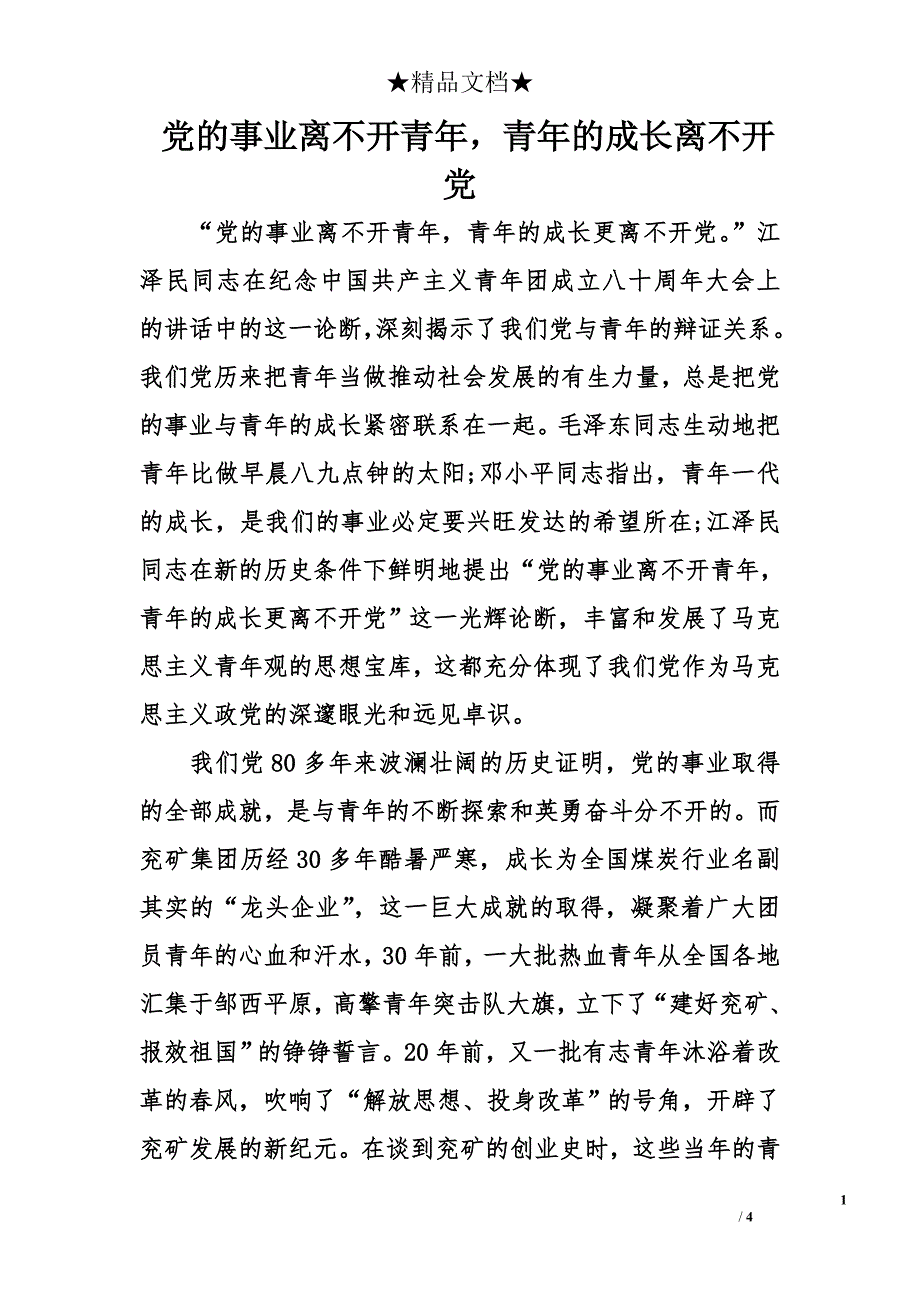 ★精品文档★
党的事业离不开青年，青年的成长离不开
党
“党的事业离不开青年，青年的成长更离不开党。”江
泽民同志在纪念中国共产主义青年团成立八十周年大会上
的讲话中的这一论断，深刻揭示了我们党与青年的辩证关系。
我们党历来把青年当做推动社会发展的有生力量，总是把党
的事业与青年的成长紧密联系在一起。毛泽东同志生动地把
青年比做早晨八九点钟的太阳;邓小平同志指出，青年一代
的成长，是我们的事业必定要兴旺发达的希望所在;江泽民
同志在新的历史条件下鲜明地提出“党的事业离不开青年，
青年的成长更离不开党”这一光辉论断，丰富和发展了马克
思主义青年观的思想宝库，这都充分体现了我们党作为马克
思主义政党的深邃眼光和远见卓识。
我们党 80 多年来波澜壮阔的历史证明，党的事业取得
的全部成就，是与青年的不断探索和英勇奋斗分不开的。而
兖矿集团历经 30 多年酷暑严寒，成长为全国煤炭行业名副
其实的“龙头企业”，这一巨大成就的取得，凝聚着广大团
员青年的心血和汗水，30 年前，一大批热血青年从全国各地
汇集于邹西平原，高擎青年突击队大旗，立下了“建好兖矿、
报效祖国”的铮铮誓言。20 年前，又一批有志青年沐浴着改
革的春风，吹响了“解放思想、投身改革”的号角，开辟了
兖矿发展的新纪元。在谈到兖矿的创业史时，这些当年的青
1
/ 4